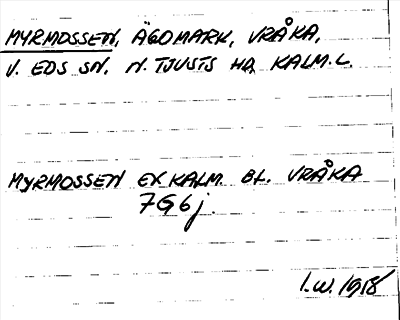 MYRMOSSEN, ÄGOMARK, VRÅKA,
V. EDS SN. N. TJUSTS HD, KALM. L.
MYRMOSSEN EX KALM. BL. VRÅKA
7G6j.
I.W. 1918